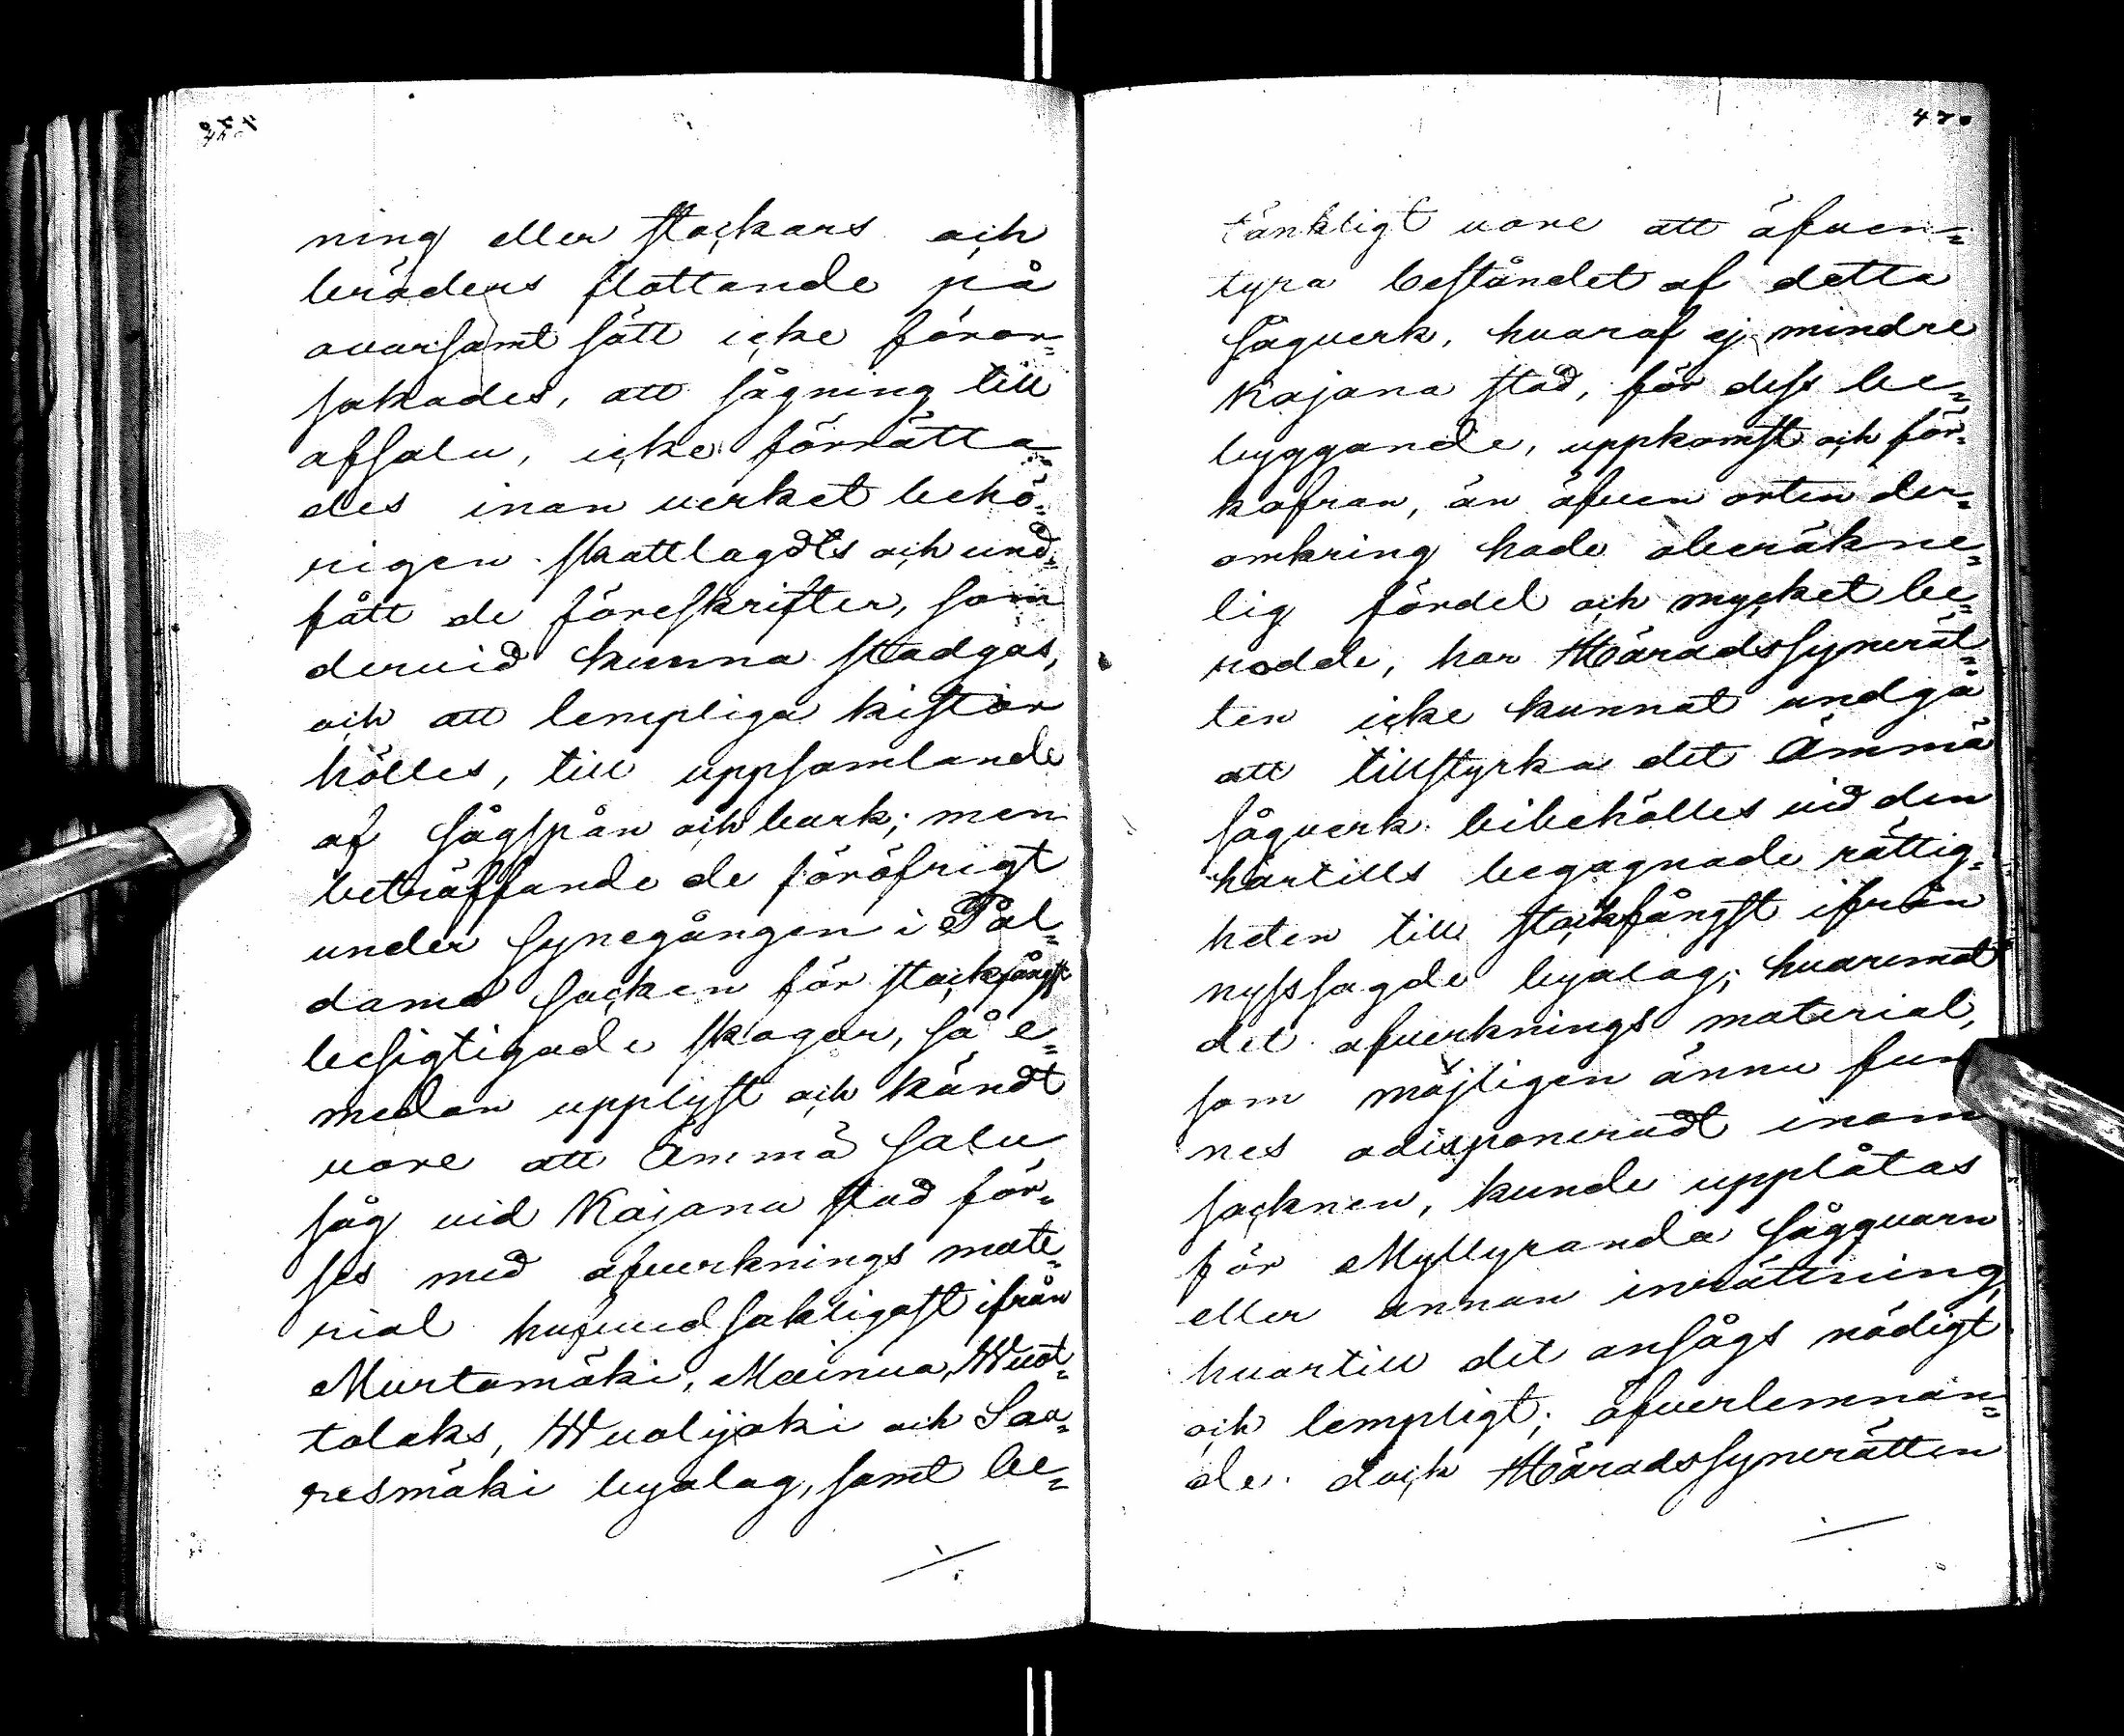 ning eller stockars och
bräders flottande på
ovarsamt sätt icke föror-
sakades, att sågning till
afsalu, icke förrätta-
des inan verket behö-
rigen skattlagdts och und-
fått de föreskrifter, som
dervid kunna stadgas,
och att lempliga kistor
hölles, till uppsamlande
af sågspån och bark; men
beträffande de föröfrigt
under synegången i Pal-
damo Socken för stockfångst
besigtigade skogar, så e-
medan upplyst och kändt
vore att Ämmä Salu
såg vid Kajana stad för-
ses med afverknings mate-
rial hufvudsakligast ifrån
Murtomäki, Mainua, Wuot-
tolaks, Wuolijoki och Saa-
resmäki byalag, samt be-
./.
470
tänkligt vore att äfven-
tyra beståndet af detta
sågverk, hvaraf ej mindre
Kajana stad, för dess be-
byggande, uppkomst och för-
kofran, än äfven orten der-
omkring hade oberäkne-
lig fördel och mycket be-
rodde, har Häradssynerät-
ten icke kunnat undgå
att tillstyrka det Ämmä
sågverk bibehölles vid den
härtills begagnade rättig-
heten till stockfångst ifrån
nyssagde byalag; hvaremot
det afverknings material,
som möjligen ännu fun
nes odisponeradt inom
socknen, kunde upplåtas
för Myllyranda sågqvarn
eller annan inrättning,
hvartill det ansågs nödigt
och lempligt; öfverlemnan-
de dock Häradssynerätten
./.